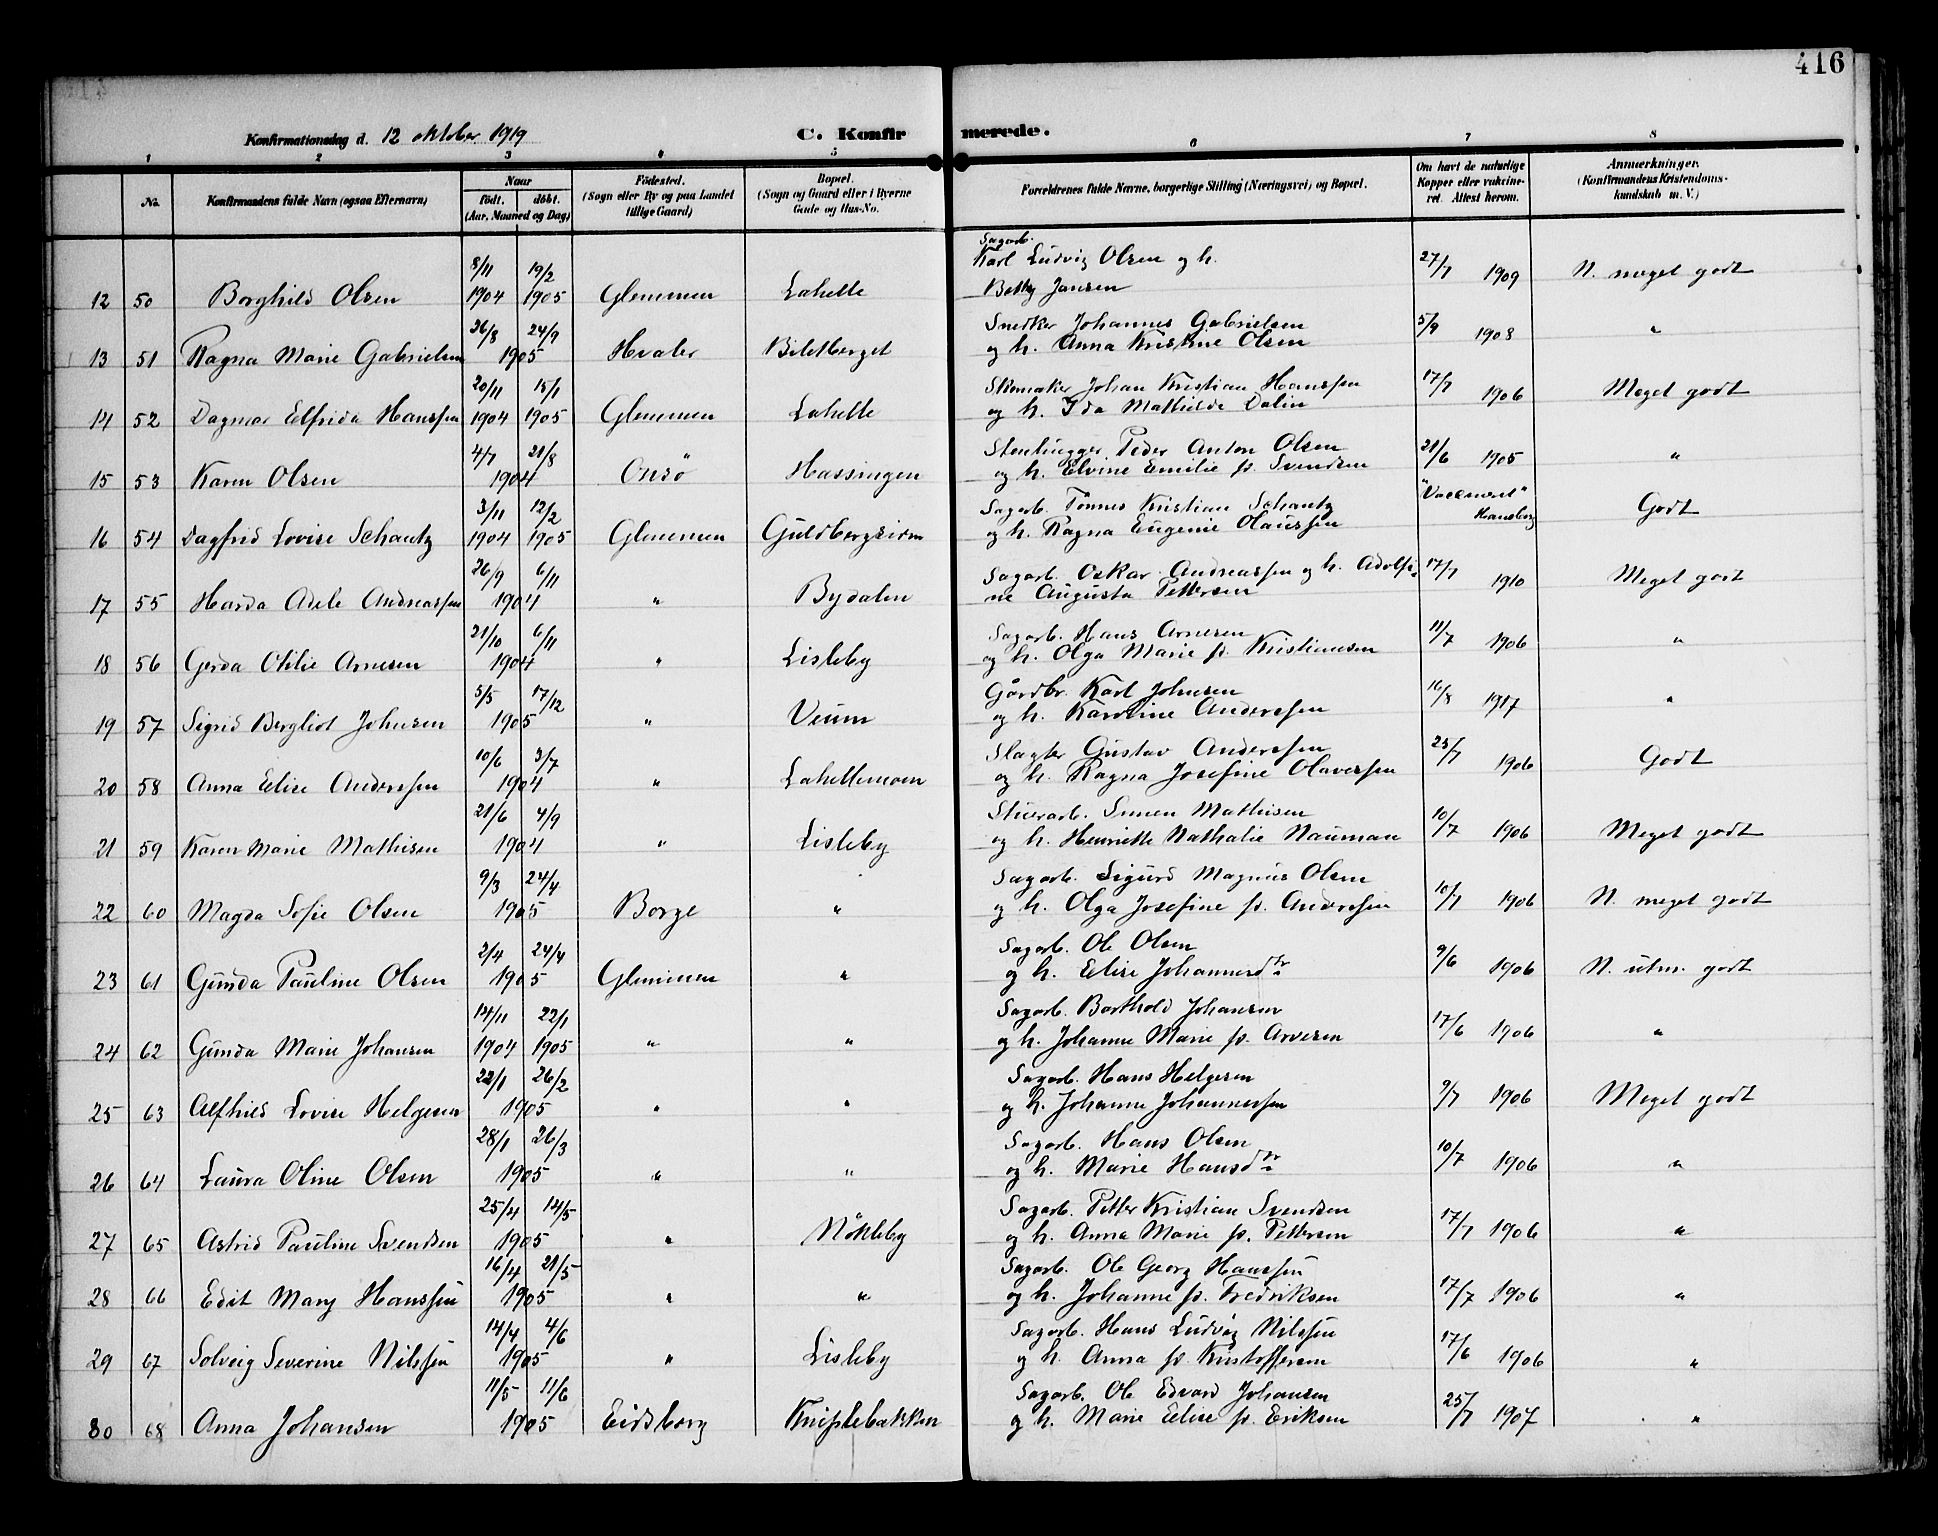 416
Konfirmationsdag d. 12 oktober 1919
C. Konfirmerede.
1 2 3 4 5 6 7 8
No.
Konfirmandens fulde Navn (ogsaa Efternavn)
Naar
födt. döbt.
(Aar, Maaned og Dag)
Födested.
(Sogn eller By og paa Landet
tillige Gaard)
Bopæl.
(Sogn og Gaard eller i Byerne
Gade og Hus-No.
Forældrenes fulde Navne, borgerlige Stilling (Næringsvei) og Bopæl.
Om havt de naturlige
Kopper eller vakcine-
ret. Attest herom.
Anmærkninger.
(Konfirmandens Kristendoms-
kundskab m. V.)
8/11 19/2 Sagarb. Karl Ludvig Olsen og h. 27/7
12 50 Borghild Olsen 1904 1905 Glemmen Lahelle Betty Jansen 1909 N. meget godt
26/8 24/9 Snedker Johannes Gabrielsen 5/9
13 51 Ragna Marie Gabrielsen 1905 Hvaler Bildberget og h. Anna Kristine Olsen 1908 "
20/11 15/1 Skomaker Johan Kristian Hanssen 17/7
14 52 Dagmar Elfrida Hanssen 1904 1905 Glemmen Lahelle og h. Ida Mathilde Dalin 1906 Meget godt
4/7 21/8 Stenhugger Peder Anton Olsen 21/6
15 53 Karen Olsen 1904 Onsö Hassingen og h. Elvine Emilie f. Svendsen 1905 "
3/11 12/2 Sagarb. Tönnes Kristian Schantz
16 54 Dagfrid Lovise Schantz 1904 1905 Glemmen og h. Ragna Eugenie Olaussen Godt
26/9 6/11 Sagarb. Oskar Andreassen og h. Adolfi- 17/7
17 55 Harda Adele Andreassen 1904 " Bydalen ne Augusta Pettersen 1910 Meget godt
21/10 6/11 Sagarb. Hans Arnesen 11/7
18 56 Gerda Otilie Arnesen 1904 " Lisleby og h. Olga Marie f. Kristiansen 1906 "
5/5 17/12 Gårdbr. Karl Johnsen 16/8
19 57 Sigrid Bergliot Johnsen 1905 " Veum og h. Karoline Anderssen 1917 "
10/6 3/7 Slagter Gustav Anderssen 25/7
20 58 Anna Elise Anderssen 1904 " Lahellemoen og h. Ragna Josefine Olavessen 1906 Godt
21/6 4/9 Mathisen 10/7
21 59 Karen Marie Mathisen 1904 " Lisleby og h. Henriette Nathalie Nauman 1906 Meget godt
9/3 24/4 Sagarb. Sigurd Magnus Olsen 10/7
22 60 Magda Sofie Olsen 1905 Borge " og h. Olga Josefine f. Anderssen 1906 N. meget godt
2/4 24/4 Sagarb. Ole Olsen 9/6
23 61 Gunda Pauline Olsen 1905 Glemmen " og h. Elise Johannesdtr 1906 N. utm. godt
14/11 22/1 Sagarb. Barthold Johansen 17/6
24 62 Gunda Marie Johansen 1904 1905 " " og h. Johanne Marie f. Arvesen 1906 "
22/1 26/2 Sagarb. Hans Helgesen 9/7
25 63 Alfhild Lovise Helgesen 1905 " " og h. Johanne Johannessen 1906 Meget godt
28/1 26/3 Sagarb. Hans Olsen 10/7
26 64 Laura Oline Olsen 1905 " " og h. Marie Hansdtr 1906 "
25/4 14/5 Sagarb. Petter Kristian Svendsen 17/7
27 65 Astrid Pauline Svendsen 1905 " Nökleby og h. Anna Marie f. Pettersen 1906 "
16/4 21/5 Sagarb. Ole Georg Hanssen
28 66 Edit Mary Hanssen 1905 " " og h. Johanne f. Fredriksen 17/7 1906 "
14/4 4/6 Sagarb. Hans Ludvig Nilssen 17/6
29 67 Solveig Severine Nilssen 1905 " Lisleby og h. Anna f. Kristoffersen 1906 "
11/5 11/6 Sagarb. Ole Edvard Johansen 25/7
30 68 Anna Johansen 1905 Eidsberg Kniplebakken og h. Marie Elise f. Eriksen 1907 "